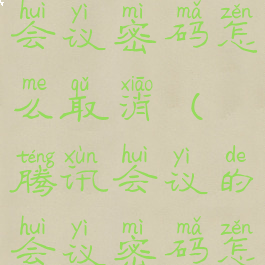 huì yì mì mǎ zěn
会议密码怎
me qǔ xiāo
么取消（
téng xùn huì yì de
腾讯会议的
huì yì mì mǎ zěn
会议密码怎